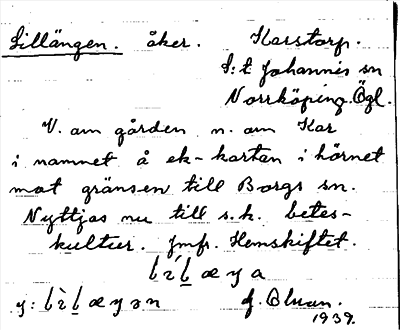 Lillängen. åker. Karstorp.
S:t Johannis sn
Norrköping. Ögl.
V. om gården n. om Kar
i namnet å ek-kartan i hörnet
mot gränsen till Borgs sn.
Nyttjas nu till s.k. betes-
kultur. Jmfr. Hemskiftet.
y:
1939.